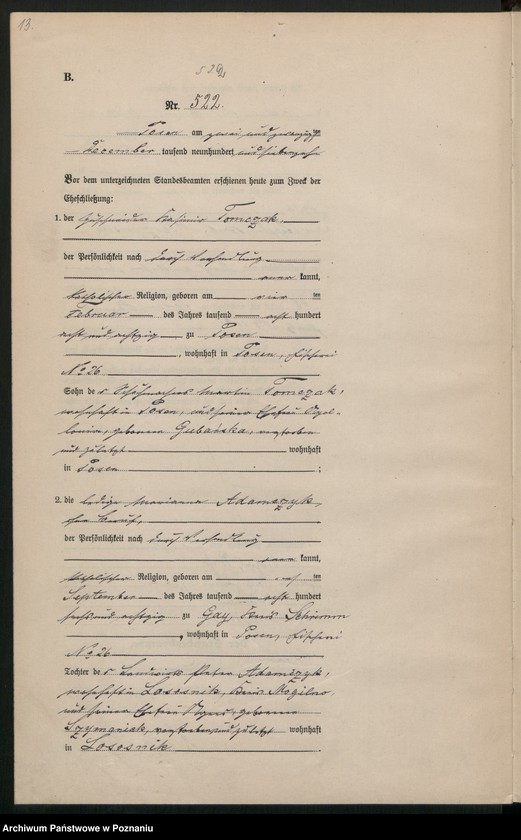 13.
522
B.
Nr. 522.
Posen am zwei und zwanzigsten
December tausend neunhundert und siebenzehn
Vor dem unterzeichneten Standesbeamten erschienen heute zum Zweck der
Eheschließung:
1. der Zuschneider Kasimir Tomczak
der Persönlichkeit nach durch Verhandlung
aner kannt,
katholischer Religion, geboren am vier ten
Februar des Jahres tausend acht hundert
acht und achtzig zu Posen
, wohnhaft in Posen, Fischerei
No 26
Sohn des Schuhmachers Martin Tomczak,
wohnhaft in Posen, und seiner Ehefrau Apol-
lonia, geborenen Gubańska, verstorben
und zuletzt wohnhaft
in Posen ;
2. die ledige Marianna Adamczyk,
ohne Beruf,
der Persönlichkeit nach durch Verhandlung
aner kannt,
katholischer Religion, geboren am ten
September des Jahres tausend acht hundert
sechs und achtzig zu Gay, Kreis Schrimm
, wohnhaft in Posen, Fischerei
No 26
Tochter des Landwirts Peter Adamczyk,
wohnhaft in Lososnik, Kreis Mogilno
und seiner Ehefrau Agnes, geborenen
Szymaniak, verstorben und zuletzt wohnhaft
in Lososnik .
Archiwum Państwowe w Poznaniu